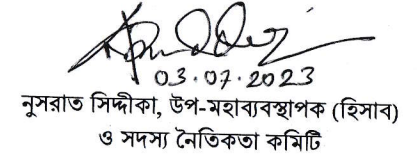 03.07.2023
নুসরাত সিদ্দীকা, উপ-মহাব্যবস্থাপক (হিসাব)
ও সদস্য নৈতিকতা কমিটি